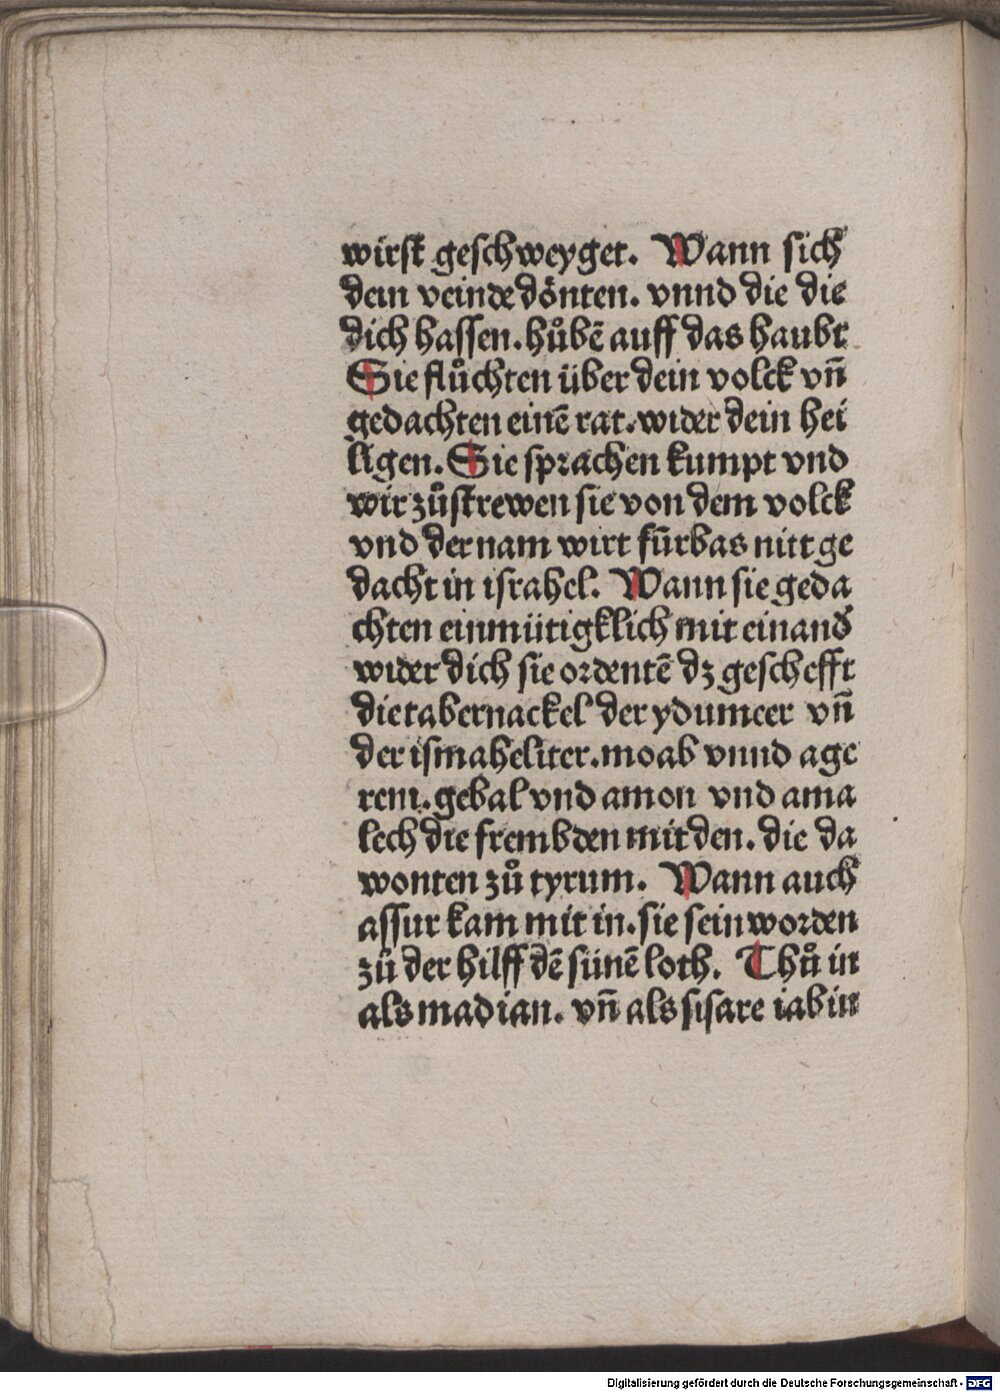 wirst geschweyget. Wann sich
dein veinde dönten. vnnd die die
dich hassen. hůbē auff das haubt
Sie flůchten über dein volck vn̄
gedachten einē rat. wider dein hei
ligen. Sie sprachen kumpt vnd
wir zůstrewen sie von dem volck
vnd der nam wirt fürbas nitt ge
dacht in israhel. Wann sie geda
chten einmütigklich mit einand̛
wider dich sie ordentē dz geschefft
die tabernackel der ydumeer vn̄
der ismaheliter. moab vnnd age
reni. gebal vnd amon vnd ama
lech die frembden mit den. die da
wonten zů tyrum. Wann auch
assur kam mit in. sie sein worden
zů der hilff dē sünē loth. Thů in
als madian. vn̄ als sisare iabin
Digitalisierung gefördert durch die Deutsche Forschungsgemeinschaft - DFG